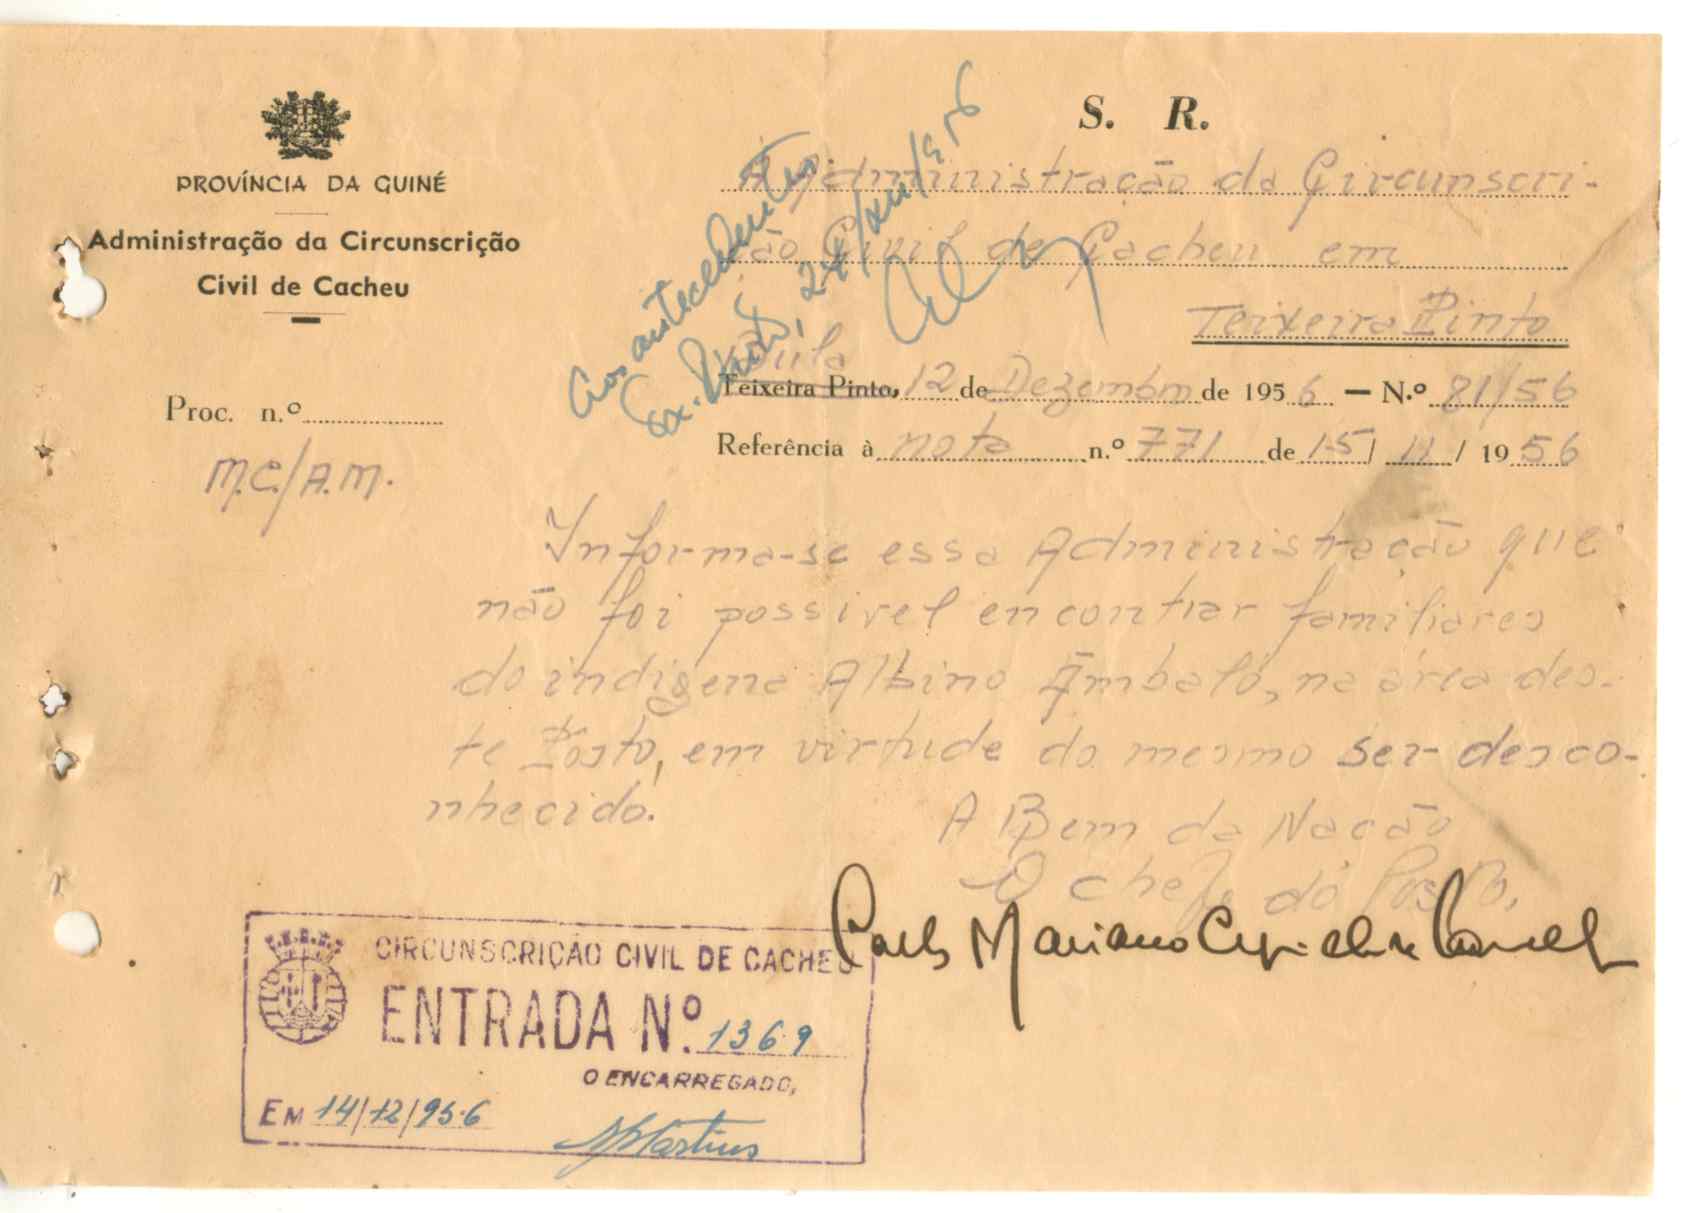 S. R.
PROVÍNCIA DA GUINÉ
Administração da Circunscrição
Civil de Cacheu
À Administração da Circunscri-
ão Civil de Cacheu em
Teixeira Pinto
Aos antecedentes
Pinto, 24/XII/956
Bula
Teixeira Pinto, 12 de Dezembro de 1956 — N.º 81/56
Proc. n.º
Referência à nota n.º 771 de 15/11/1956
M.C./A.M.
Informa-se essa Administração que
não foi possivel encontrar familiares
do indigena Albino Ambaló, na área des-
te Posto, em virtude do mesmo ser desco-
nhecido.
A Bem da Nação
O chefe do Posto,
Carlos Mariano
CIRCUNSCRIÇÃO CIVIL DE CACHEU
ENTRADA Nº. 1369
O ENCARREGADO,
EM 14/12/956
Martins